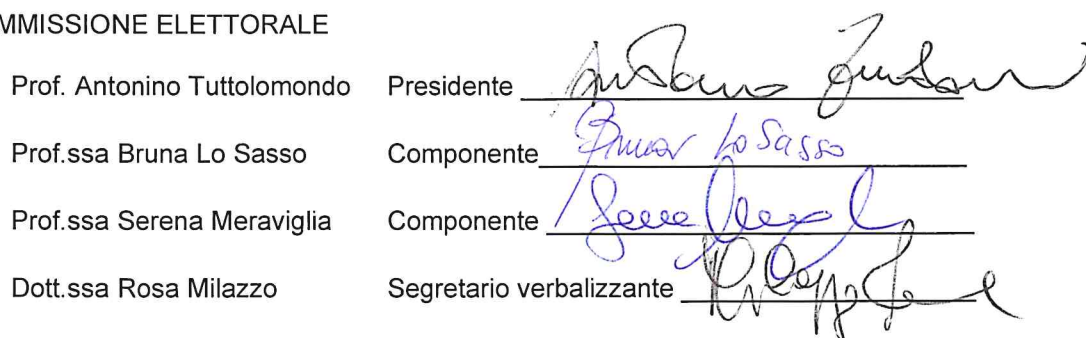 MMISSIONE ELETTORALE
Prof. Antonino Tuttolomondo Presidente
Prof.ssa Bruna Lo Sasso Componente Bruna Lo Sasso
Prof.ssa Serena Meraviglia Componente
Dott.ssa Rosa Milazzo Segretario verbalizzante